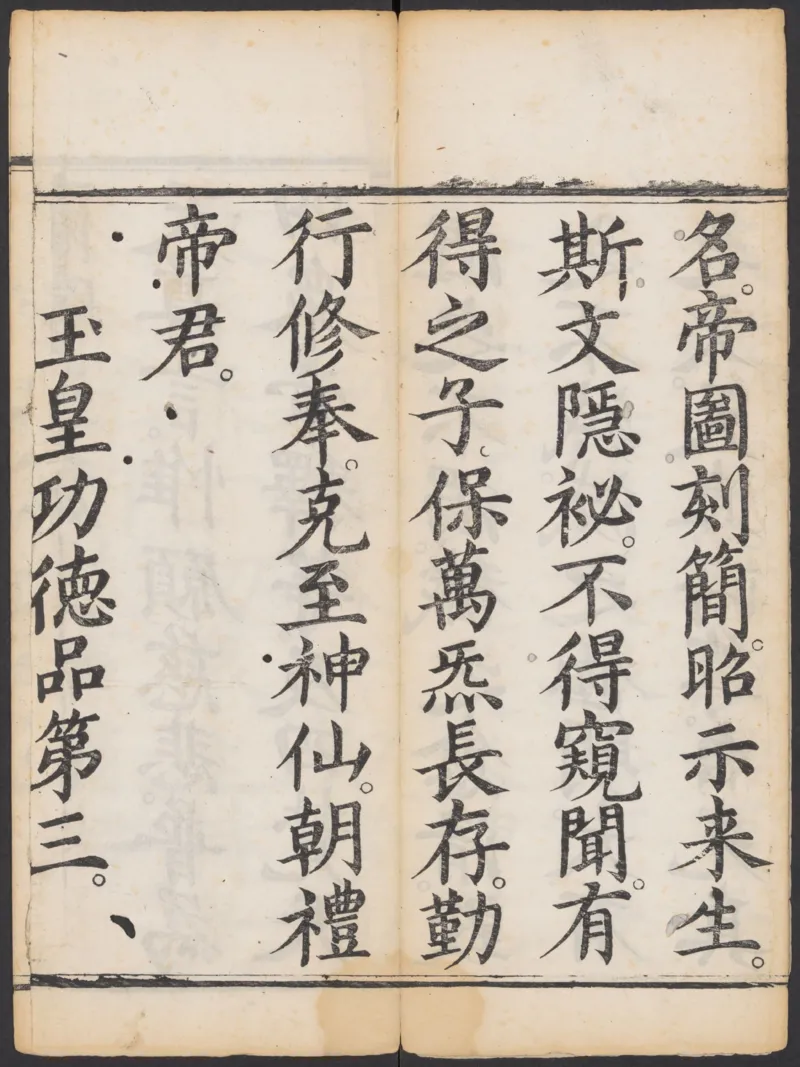 名。帝圖刻簡。昭示来生。
斯文隱祕。不得窺聞。有
得之子。保萬炁長存。勤
行修奉。克至神仙。朝禮
帝君。
玉皇功德品第三。